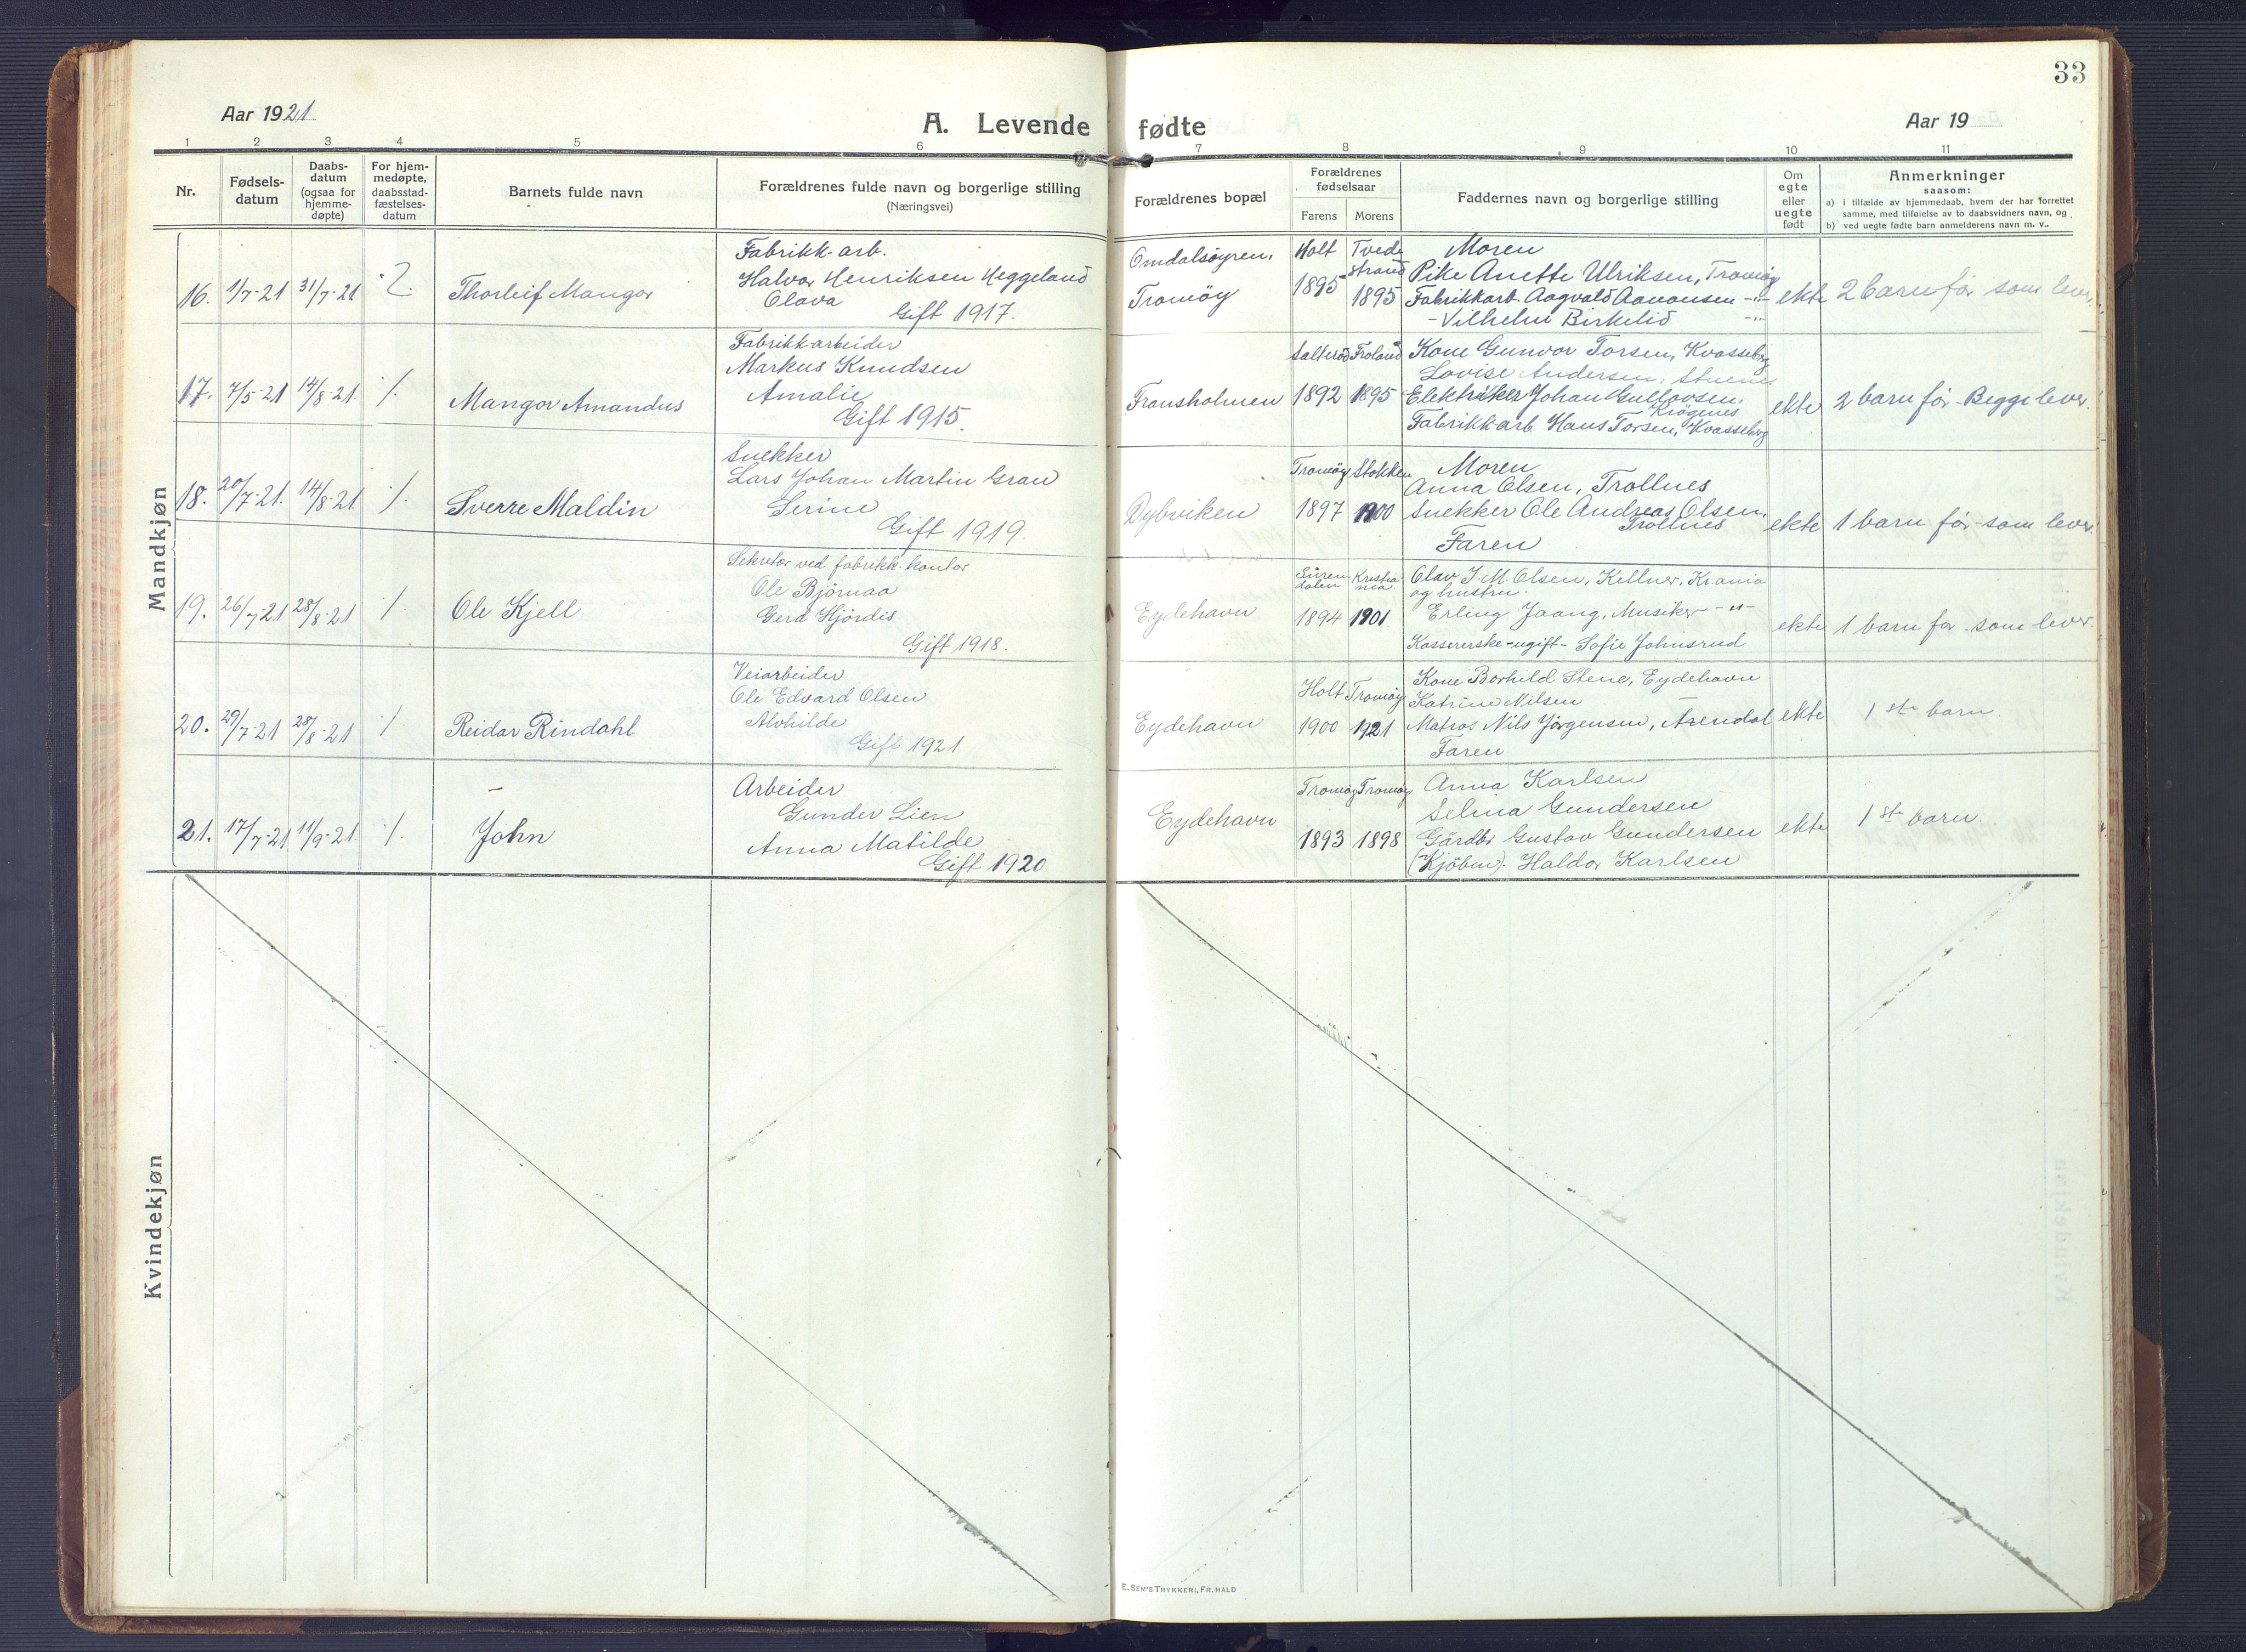 33
Aar 1921
A. Levende fødte
Aar 19
1 2 3 4 5 6 7 8 9 10 11
Nr.
Fødsels-
datum
Daabs-
datum
(ogsaa for
hjemme-
døpte)
For hjem-
medøpte,
daabsstad-
fæstelses-
datum
Barnets fulde navn
Forældrenes fulde navn og borgerlige stilling
(Næringsvei)
Forældrenes bopæl
Forældrenes
fødselsaar
Farens Morens
Faddernes navn og borgerlige stilling
Om
egte
eller
uegte
født
Anmerkninger
saasom:
a) i tilfælde av hjemmedaab, hvem der har forrettet
samme, med tilføielse av to daabsvidners navn, og
b) ved uegte fødte barn anmelderens navn m. v..
Mandkjøn
16. 1/7-21 31/7-21 Thorleif Mangor
Fabrikk-arb.
Halvor Henriksen Heggeland
Olava
Gift 1917.
Omdalsøyren,
Tromøy
Holt
1895
Tvede
strand
1895
Moren
Pike Anette Ulriksen, Tromøy
Fabrikkarb. Aagvald Aanonsen -"-
- Vilhelm Birkelid -"-
ekte
2 barn før som lever.
17. 7/5-21 14/8-21 ./. Mangor Amandus
Fabrikkarbeider
Markus Knudsen
Amalie
Gift 1915.
Fransholmen
Salterød
1892
Froland
1895
Kone Gunvor Torsen, Kvasseberg
Lovise Andersen, Stuenes
Elektriker Johan Gullovsen,
Krøgenes
Fabrikkarb Hans Torsen, Kvasseberg
ekte
2 barn før - Begge lever.
18. 20/7-21. 14/8-21 ./. Sverre Maldin
Snekker
Lars Johan Martin Gran
Serine
Gift 1919.
Dybviken
Tromøy
1897
Stokken
1900
Moren
Anna Olsen, Trollnes
Snekker Ole Andreas Olsen,
Trollnes
Faren
ekte
1 barn før - som lever.
19. 26/7-21 28/8-21 ./. Ole Kjell
Sekretær ved fabrikk-kontor
Ole Bjørnaa
Gerd Hjørdis
Gift 1918.
Eydehavn
Suren
dalen
1894
Kristia
nia
1901
Olav J. M. Olsen, Kellner, Krania
og hustru.
Erling Jaang, Musiker -"-
Kassererske - ugift - Sofie Johnsrud
ekte
1 barn før - som lever.
20. 29/7-21 28/8-21 ./. Reidar Rindahl
Veiarbeider
Ole Edvard Olsen
Alvhilde
Gift 1921
Eydehavn
Holt
1900
Tromøy
1921
Kone Borhild Stene, Eydehavn
Katrine Nilsen
Matros Nils Jørgensen, Arendal
Faren
ekte
1ste barn
21. 17/7-21 11/9-21 ./. John
Arbeider
Gunder Lien
Anna Matilde
Gift 1920
Eydehavn
Tromøy
1893
Tromøy
1898
Anna Karlsen
Selma Gundersen
Gårdbr Gustav Gundersen
(Kjøbm). Haldor Karlsen
ekte
1ste barn.
Kvindekjøn
E. SEM'S TRYKKERI, FR. HALD